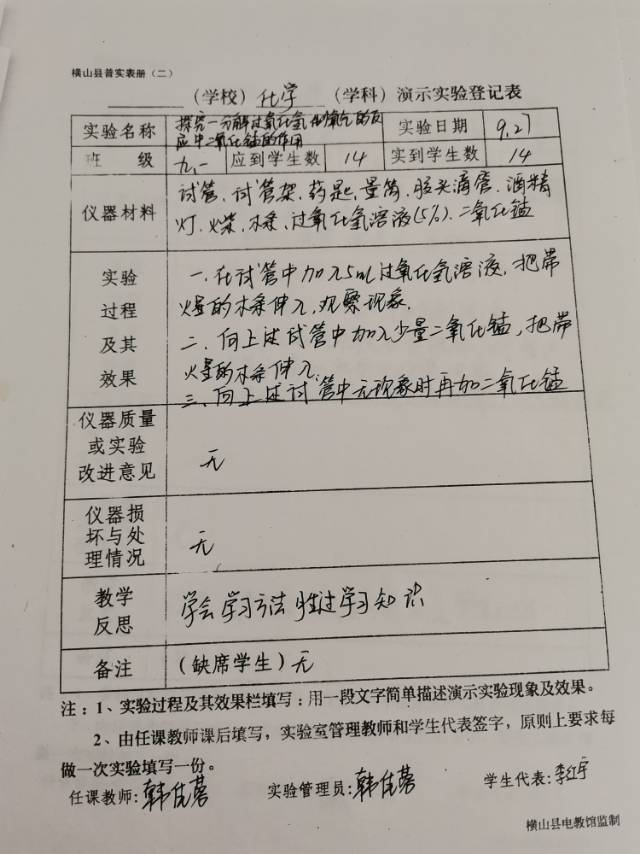 横山县普实表册（二）
（学校）化学（学科）演示实验登记表
实验名称 探究一分解过氧化氢制氧气的反应中二氧化锰的作用 实验日期 9.27
班 级 九.一 应到学生数 14 实到学生数 14
仪器材料 试管、试管架、药匙、量筒、胶头滴管、酒精
灯、火柴、木条、过氧化氢溶液(5%)、二氧化锰
实验
过程
及其
效果
一.在试管中加入5mL过氧化氢溶液，把带
火星的木条伸入，观察现象.
二.向上述试管中加入少量二氧化锰，把带
火星的木条伸入.
三.向上述试管中无现象时再加二氧化锰
仪器质量
或实验
改进意见
无
仪器损
坏与处
理情况
无
教学
反思
学会学习方法胜过学习知识
备注 （缺席学生）无
注：1、实验过程及其效果栏填写：用一段文字简单描述演示实验现象及效果。
2、由任课教师课后填写，实验室管理教师和学生代表签字，原则上要求每
做一次实验填写一份。
任课教师：韩佳蓉 实验管理员：韩佳蓉 学生代表：李红宇
横山县电教馆监制